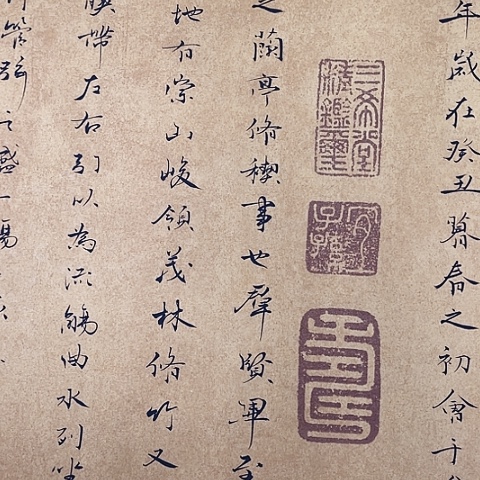 年歲在癸丑暮春之初會于
三希堂精鑑璽
宜子孫
之蘭亭脩稧事也羣賢畢至
地有崇山峻領茂林脩竹又
暎帶左右引以為流觴曲水列坐
管弦之盛一觴